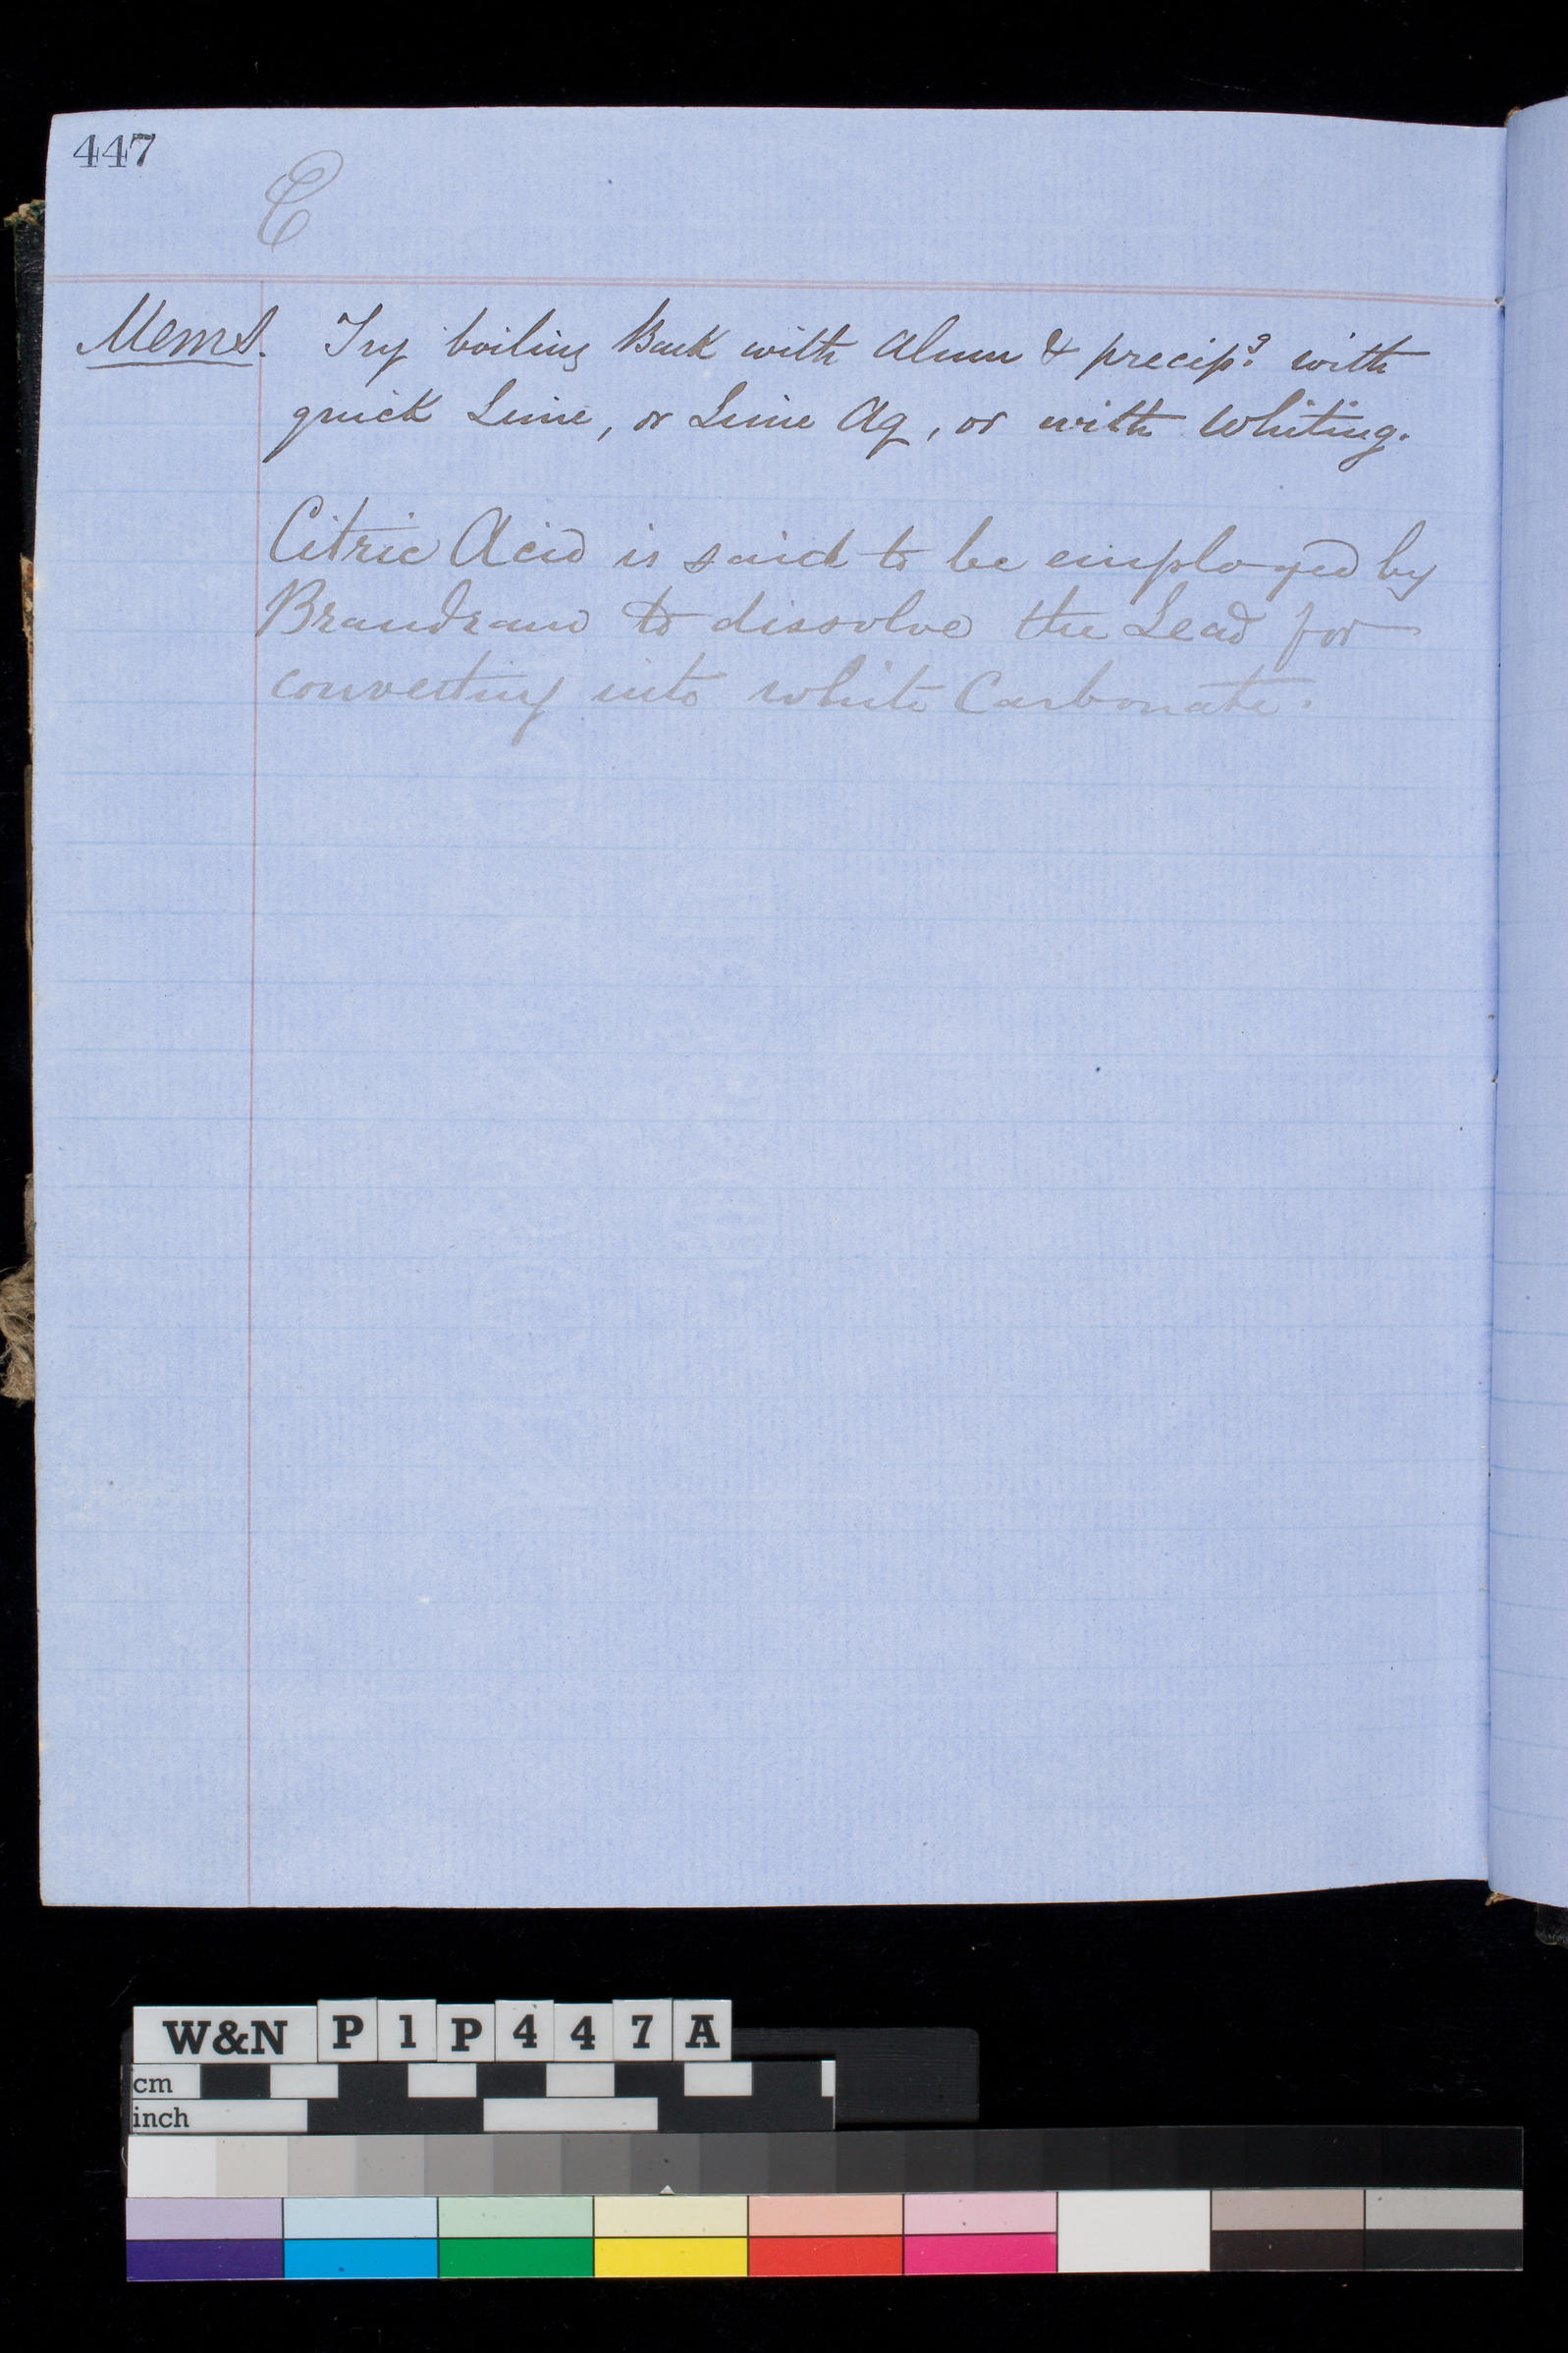 447
C
Mem:d. Try boiling Bark with Alum & precip:g with
quick Lime, or Lime Aq, or with Whiting.
Citric Acid is said to be employed by
Brandram to dissolve the Lead for
converting into white Carbonate.
W&N P1P447A
cm
inch